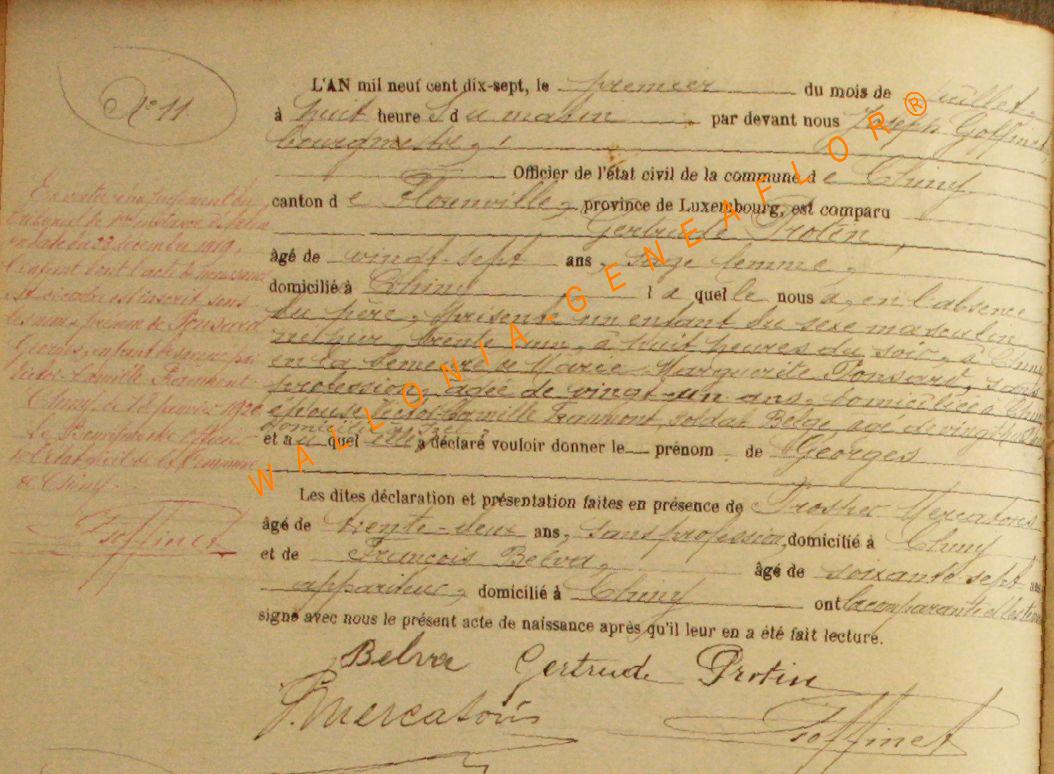 N° 11.
L'AN mil neuf cent dix-sept, le premier du mois de juillet,
à huit heures du matin par devant nous Joseph Goffinet,
bourgmestre,
Officier de l'état civil de la commune de Chiny
canton de Florenville, province de Luxembourg, est comparu
Gertrude Protin,
âgé de vingt-sept ans, sage femme,
domicilié à Chiny laquelle nous a, en l'absence
du père, présenté un enfant du sexe masculin
né hier trente juin, à huit heures du soir, à Chiny
en la demeure de Marie Marguerite Ponsard, sans
profession, agée de vingt-un ans, domiciliée à Chiny
épouse Victor Camille Fraumont, soldat Belge, agé de vingt
domicilié
et auquel elle a déclaré vouloir donner le prénom de Georges
Les dites déclaration et présentation faites en présence de Prosper Mercatoris
âgé de trente-deux ans, sans profession, domicilié à Chiny
et de François Belva, âgé de soixante-sept ans
appariteur, domicilié à Chiny ont la comparante et les témoins
signé avec nous le présent acte de naissance après qu'il leur en a été fait lecture.
Belva Gertrude Protin
P. Mercatoris Goffinet
En vertu d'un jugement du
tribunal de 1re instance
en date du 23 décembre 1919,
l'enfant dont l'acte de naissance
est inscrit sous
les nom et prénom de Ponsard
Georges,
Victor Camille
Chiny, le 12 janvier 1920
Le Bourgmestre Officier
de l'état civil de la Commune
de Chiny.
Goffinet
WALLONIA-GENEAFLOR®